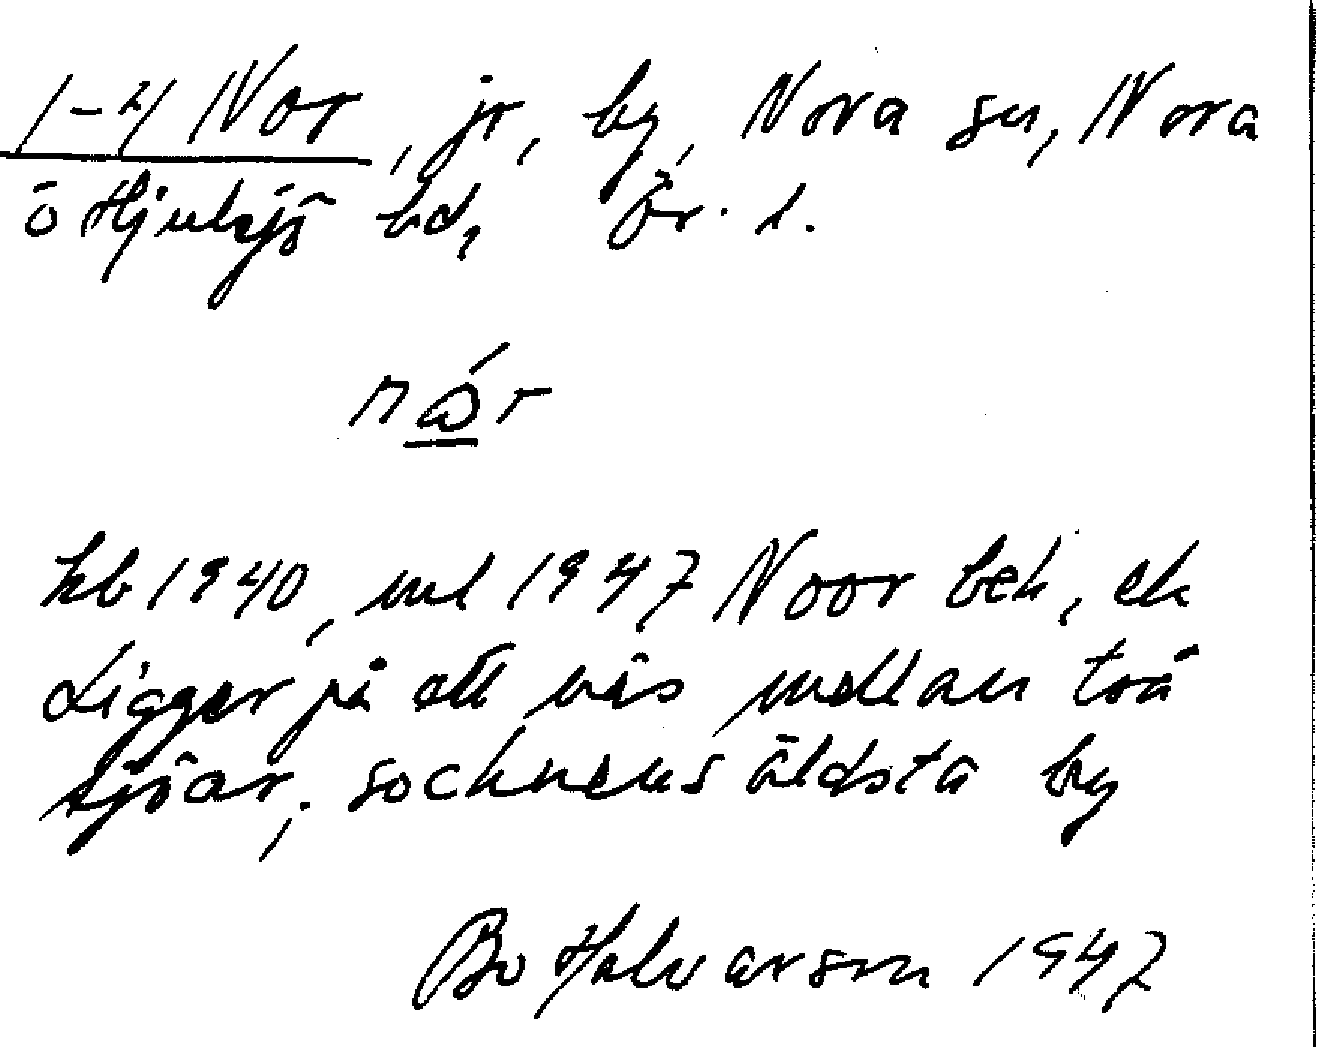 1-4 Nor, jr, by, Nora sn, Nora
o Hjulsjö bd, Ör. l.
nǻr
kb 1940, ml 1947 Noor bek, ek
Ligger på ett näs mellan två
sjöar; socknens äldsta by
Bo Halvarson 1947